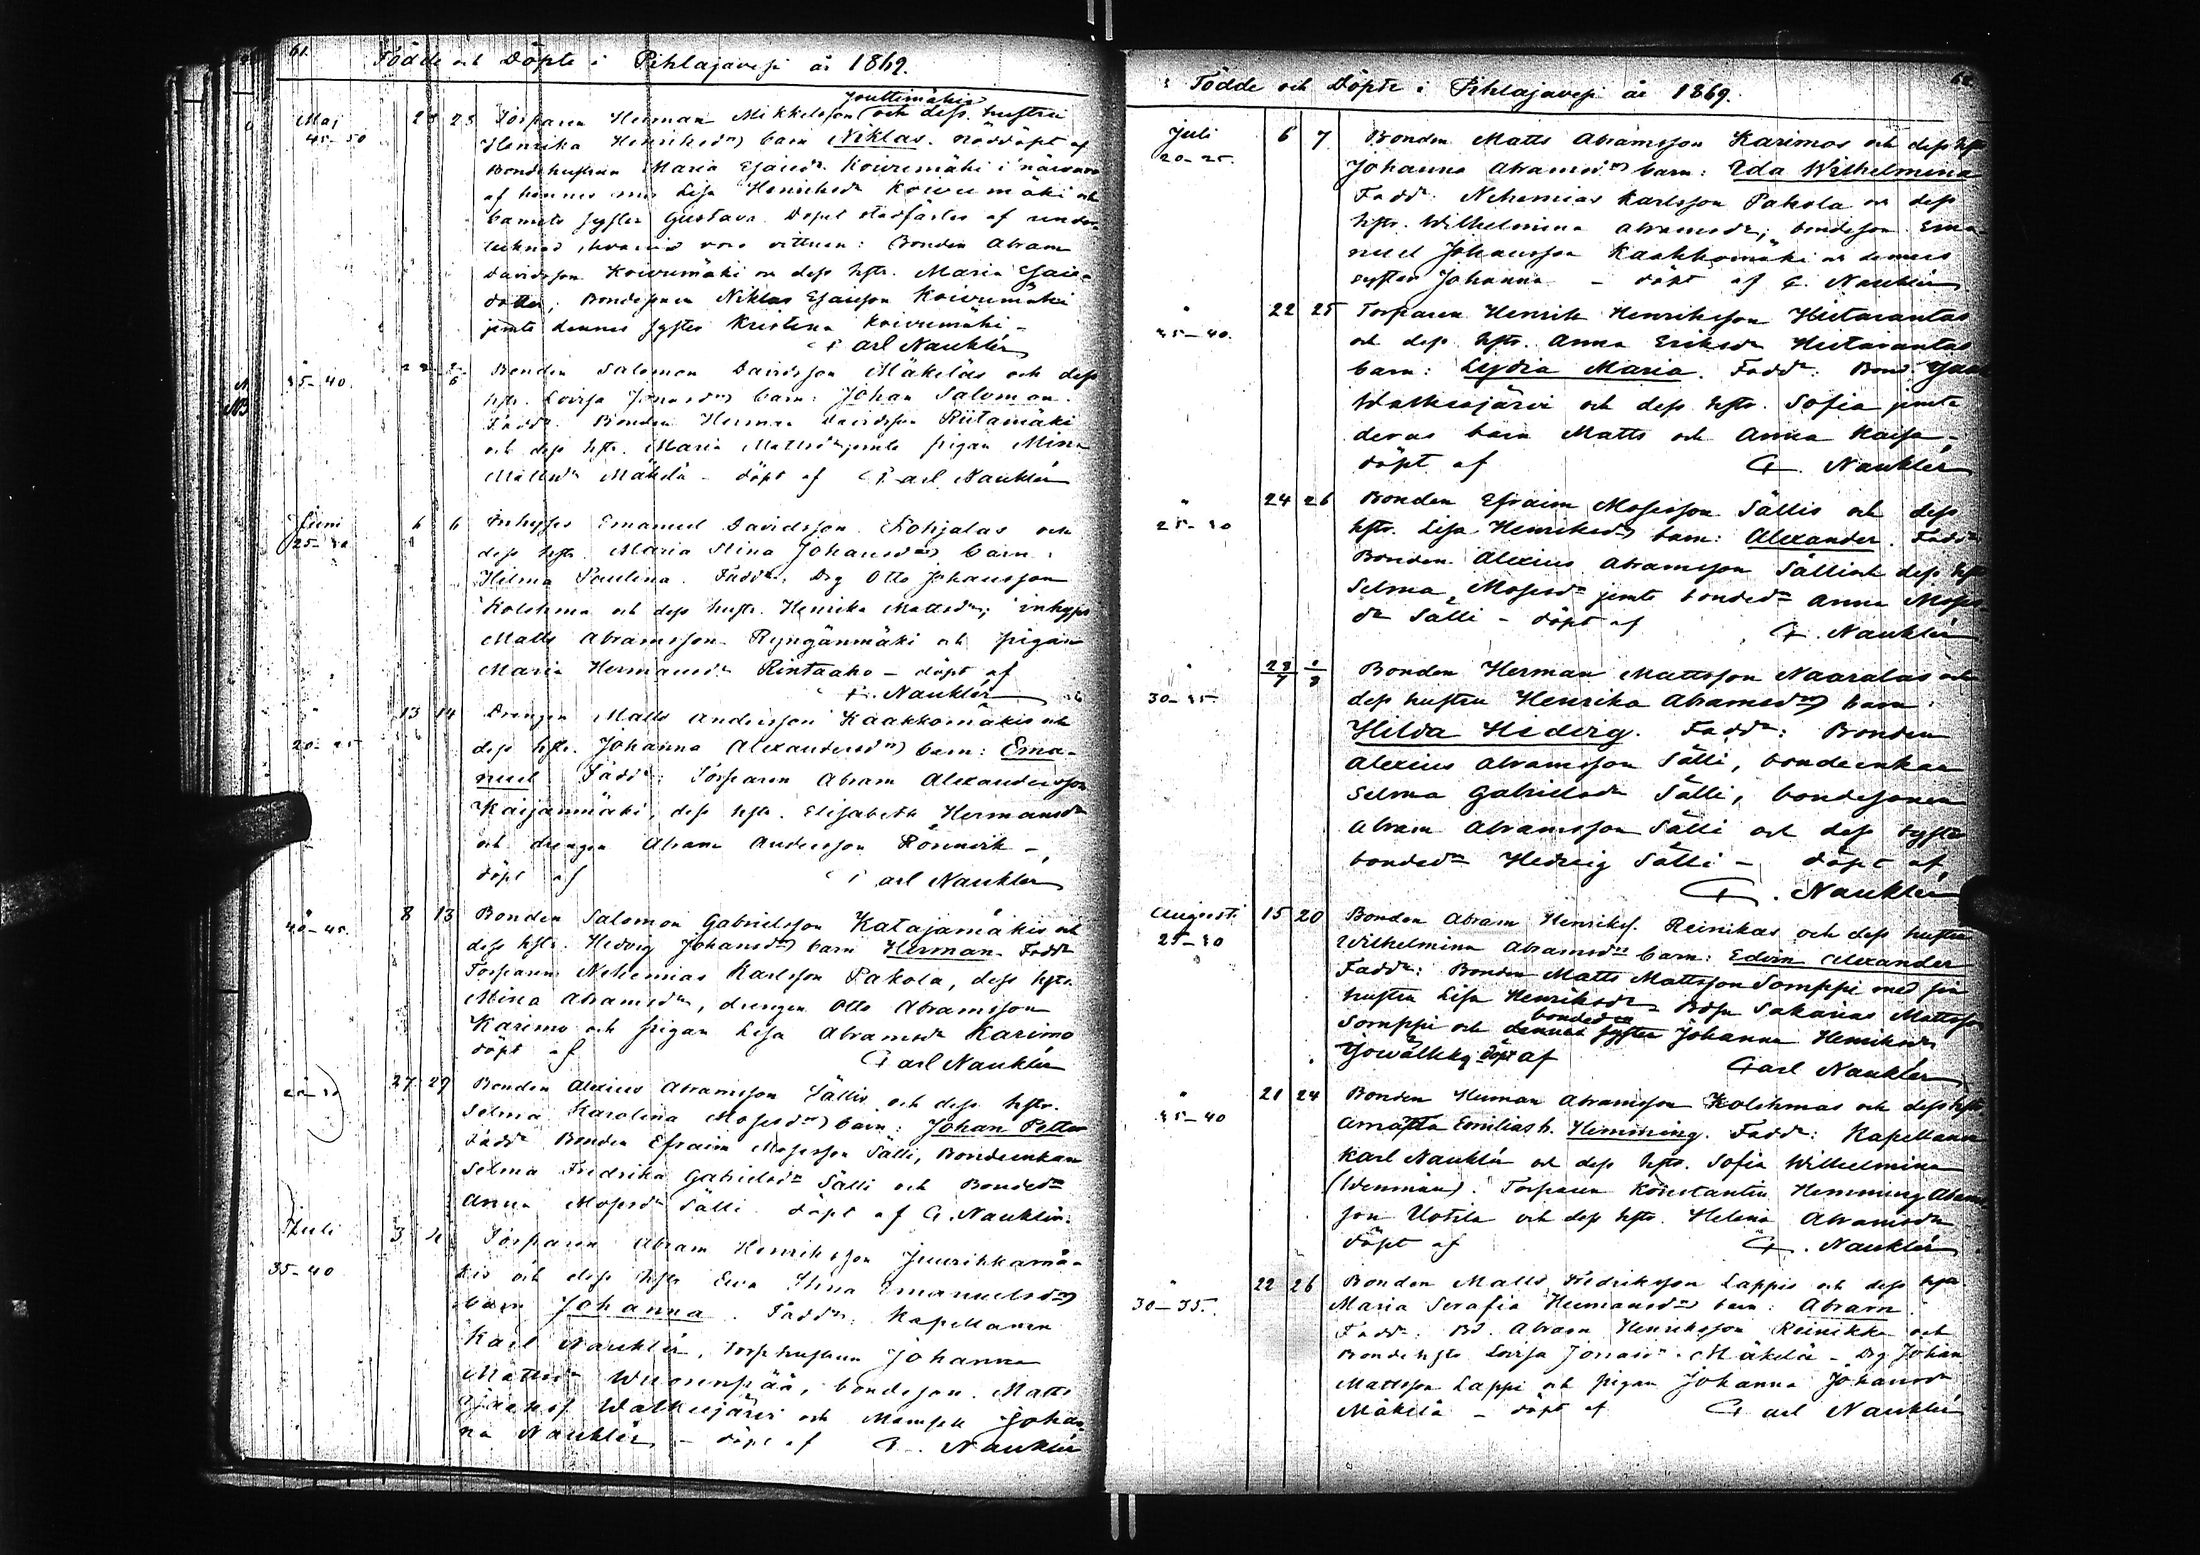 61.
Födde och Döpte i Pihlajavesi år 1869.
Maj
45-50
23
Torparen Herman Mikkelsson Jouttimäkis och dess hustru
Henrika Henriksdr barn Niklas. nöddöpt af
Bondehustrun Maria Esaiedr Koivumäki i närvaro
af hennes mor Lisa Henriksdr Koivumäki och
barnets syster Gustava. Dopet stadfästes af under-
tecknad, hvarvid voro vittnen: Bonden Abram
Davidsson Koivumäki och dess hstr. Maria Esaie-
dotter; Bondesonen Niklas Esaiesson Koivumäki
jemte dennes syster Kristina Koivumäki -
Carl Nauklér
"
35-40.
Bonden Salomon Davidsson Mäkeläs och dess
hstr. Lovisa Jonasdr barn: Johan Salomon.
Faddr Bonden Herman Davidsson Riitamäki
och dess hstr. Maria Mattsdr jemte pigan Mina
Mattsdr Mäkelä - döpt af Carl Nauklér
Juni
25-30
6 6
Inhyses Emanuel Davidsson Kohjalas och
dess hstr. Maria Stina Johansdr barn:
Hilma Paulina. Faddr. Drg Otto Johansson
Kolehma och dess hustr. Henrika Mattsdr; inhyses
Matts Abramsson Ryngänmäki och pigan
Maria Hermansdr Rintaaho - döpt af
C. Nauklér
"
20-25
13 14
Drengen Matts Andersson Kaakkomäkis och
dess hstr. Johanna Alexandersdr barn: Ema-
nuel Faddr: Torparen Abram Alexandersson
Kaijanmäki, dess hstr. Elisabeth Hermansdr
och drengen Abram Andersson Rönnvik -
döpt af Carl Nauklér
"
40-45.
8 13
Bonden Salomon Gabrielsson Katajamäkis och
dess hstr. Hedvig Johansdr barn Herman. Faddr
Torparen Nehemias Karlsson Pakola, dess hstr.
Mina Abramsdr, drengen Otto Abramsson
Karimo och pigan Lisa Abramsdr Karimo
döpt af Carl Nauklér
"
27 29
Bonden Alexius Abramsson Sällis och dess hstr.
Selma Karolina Mosesdr barn: Johan Petter
Faddr Bonden Efraim Mosesson Sälli, Bondeenkan
Selma Fredrika Gabrielsdr Sälli och Bondedr
Anna Mosesdr Sälli döpt af C. Nauklér.
Juli
35-40
3
Torparen Abram Henriksson Juurikkamä-
kis och dess hstr Eva Stina Emanuelsdr
barn Johanna. Faddr. Kapellanen
Karl Nauklér, Torphustrun Johanna
Mattsdr Wuorenpää, bondeson. Matts
Walkeejärvi och Mamsell Johan-
na Nauklér - döpt af C. Nauklér
62.
Födde och Döpte i Pihlajavesi år 1869.
Juli
20-25.
6 7
Bonden Matts Abramsson Karimos och dess hstr
Johanna Abramsdr barn: Ida Wilhelmina
Faddr: Nehemias Karlsson Pakola och dess
hstr. Wilhelmina Abramsdr; bondeson Ema-
nuel Johansson Kaakkomäki och dennes
syster Johanna - döpt af C. Nauklér
"
35-40.
22 25
Torparen Henrik Henriksson Hietarantas
och dess hstr. Anna Eriksdr Hietarantas
barn: Lydia Maria. Faddr: Bond.
Walkeajärvi och dess hstr. Sofia jemte
deras barn Matts och Anna Kaisa -
döpt af C. Nauklér
"
25-30
24 26
Bonden Efraim Mosesson Sällis och dess
hstr. Lisa Henriksdr barn: Alexander. Faddr
Bonden Alexius Abramsson Sälli och dess hstr
Selma Mosesdr jemte bondedr Anna Moses-
dr Sälli - döpt af C. Nauklér
"
30-35.
28/7 1/8
Bonden Herman Mattsson Naaralas och
dess hustru Henrika Abramsdr barn:
Hilda Hedvig. Faddr: Bonden
Alexius Abramsson Sälli, bondeenkan
Selma Gabrielsdr Sälli, bondesonen
Abram Abramsson Sälli och dess syster
bondedr Hedvig Sälli - döpt af
C. Nauklér
Augusti
25-30
15 20
Bonden Abram Henrikss. Reinikas och dess hustru
Wilhelmina Abramsdr barn: Edvin Alexander
Faddr: Bonden Matts Mattsson Somppi med sin
hustru Lisa Henriksdr Sakarias Mattsson
bondedn
Somppi och dennes syster Johanna Henriksdr
döpt af Carl Nauklér
"
35-40
21 24
Bonden Herman Abramsson Kolehmas och dess hstr
Amatta Emilias b. Hemming. Faddr: Kapellanen
Karl Nauklér och dess hstr. Sofia Wilhelmina
(Wenman). Torparen Konstantin Hemming Abrams-
son Uotila och dess hstr. Helena Abramsdr
döpt af C. Nauklér
"
30-35.
22 26
Bonden Matts Fredriksson Lappis och dess hstr
Maria Serafia Hermansdr barn: Abram.
Faddr: Bd. Abram Henriksson Reinikka och
Bondehstr Lovisa Jonasdr Mäkelä - Drg Johan
Mattsson Lappi och pigan Johanna Johansdr
Mäkelä - döpt af Carl Nauklér